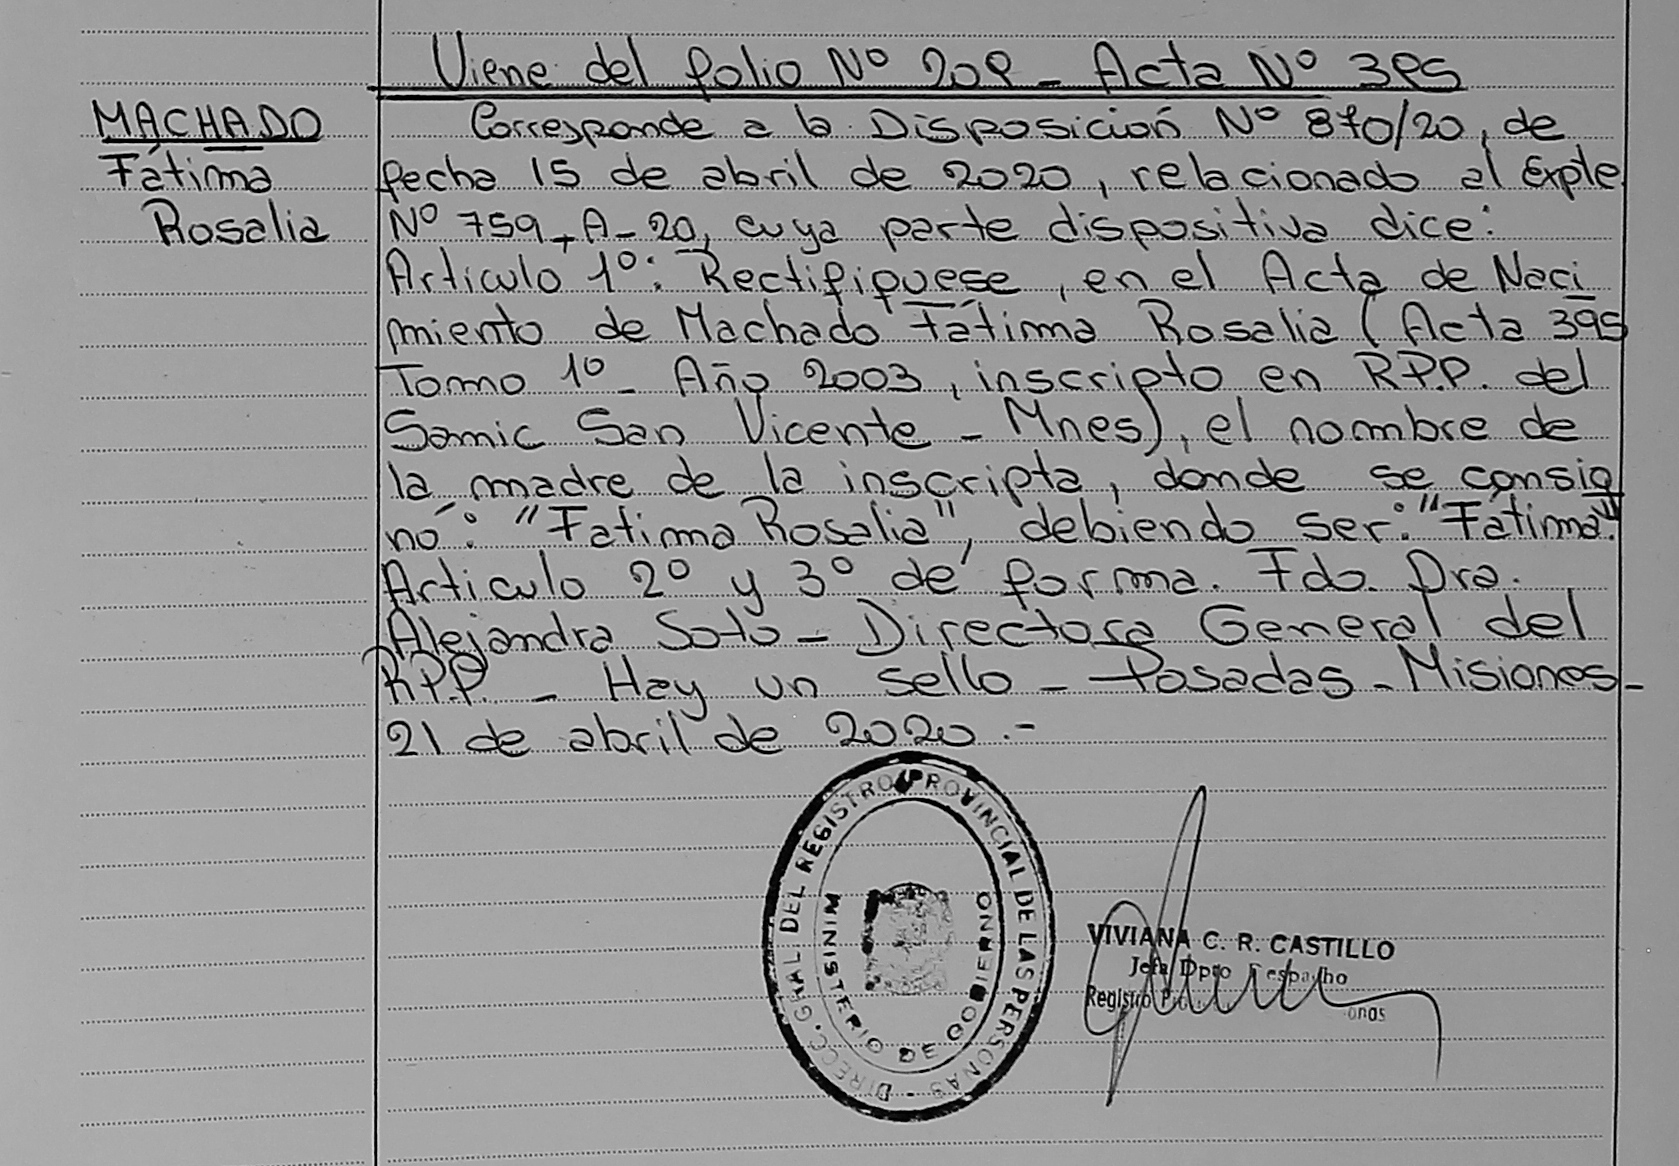 Viene del folio Nº 209 - Acta Nº 395
MACHADO
Fátima
Rosalia
Corresponde a la Disposición Nº 870/20, de
fecha 15 de abril de 2020, relacionado al Expte
Nº 759-A-20, cuya parte dispositiva dice:
Articulo 1º: Rectifiquese, en el Acta de Naci
miento de Machado Fátima Rosalia (Acta 395
Tomo 1º - Año 2003, inscripto en R.P.P. del
Samic San Vicente - Mnes), el nombre de
la madre de la inscripta, donde se consig
nó: "Fátima Rosalia", debiendo ser: "Fátima".
Articulo 2º y 3º de forma. Fdo. Dra.
Alejandra Soto - Directora General del
R.P.P. - Hay un sello - Posadas - Misiones -
21 de abril de 2020.-
DIRECC. GRAL. DEL REGISTRO PROVINCIAL DE LAS PERSONAS -
MINISTERIO DE GOBIERNO
VIVIANA C. R. CASTILLO
Jefa Dpto Despacho
Registro